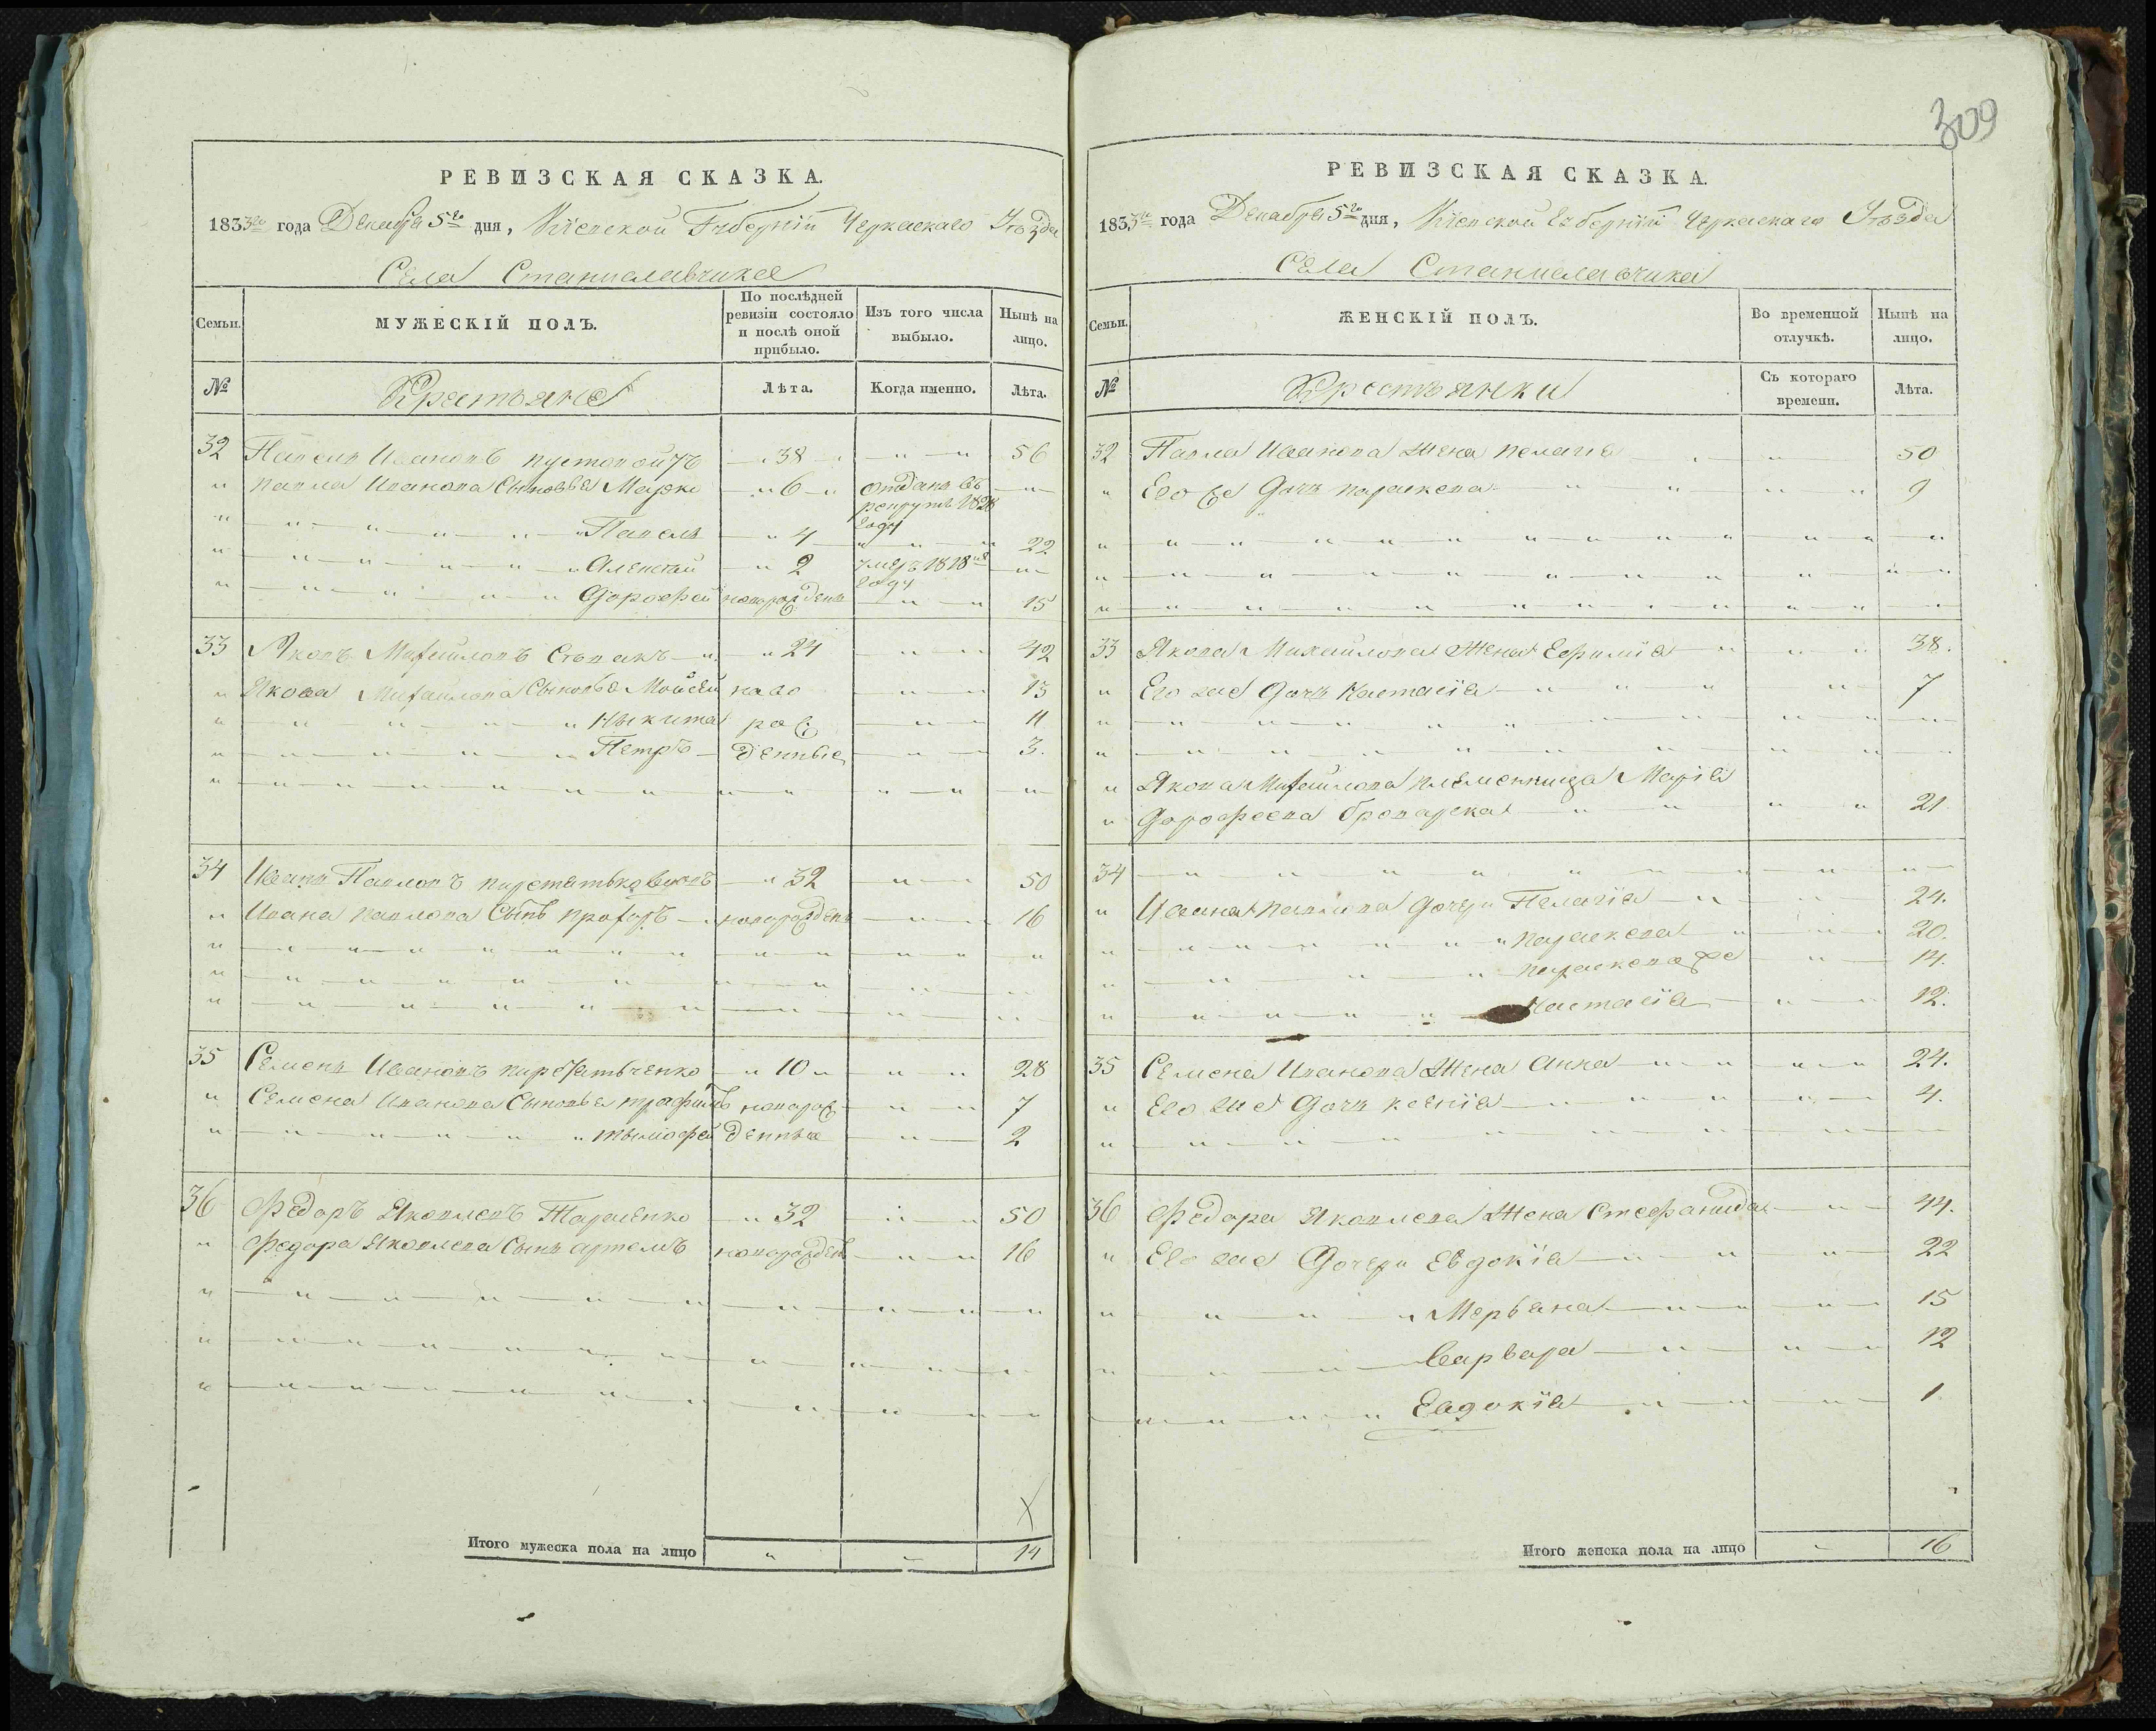 309
РЕВИЗСКАЯ СКАЗКА.
1833го года Декабря 5го дня, Кіевской Губерніи Черкаскаго Уѣзда
Села Станиславчика
Семьи.
МУЖЕСКІЙ ПОЛЪ.
По послѣдней ревизіи состояло и послѣ оной прибыло.
Изъ того числа выбыло.
Нынѣ на лицо.
№
Крестьяне
Лѣта.
Когда именно.
Лѣта.
32 Павелъ Ивановъ 38 56
Павла Иванова Сыновья Марко 6 отданъ въ рекруты 1828 году
Павелъ 4 22
Алексѣй 2 умеръ 1818 году
Дорофей новорожденъ 15
33 Яковъ Михайловъ 24 42
Якова Михайлова Сыновья Мойсей ново 13
Никита рож 11
Петръ денные 3.
34 Иванъ Павловъ 32 50
Ивана Павлова Сынъ Прохоръ новорожденъ 16
35 Семенъ Ивановъ 10 28
Семена Иванова Сыновья Трофимъ новорож 7
Тимофей денные 2
36 Федоръ Яковлевъ Тарасенко 32 50
Федора Яковлева Сынъ Артемъ новорожденъ 16
Итого мужеска пола на лицо 14
РЕВИЗСКАЯ СКАЗКА.
1833го года Декабря 5го дня, Кіевской Губерніи Черкаскаго Уѣзда
Села Станиславчика
Семьи.
ЖЕНСКІЙ ПОЛЪ.
Во временной отлучкѣ.
Нынѣ на лицо.
№
Крестьянки
Съ котораго времени.
Лѣта.
32 Павла Иванова Жена Пелагія 50
Его же Дочь Параскева 9
33 Якова Михайлова Жена Ефимія 38.
Его же Дочь Настасія 7
Якова Михайлова племенница Марія
Дорофеева 21
34
Ивана Павлова дочери Пелагія 24.
Параскева 20.
Параскева же 14.
Настасія 12.
35 Семена Иванова Жена Анна 24.
Его же Дочь Ксенія 4.
36 Федора Яковлева Жена Стефанида 44.
Его же Дочери Евдокія 22
Марьяна 15
Варвара 12
Евдокія 1
Итого женска пола на лицо 16